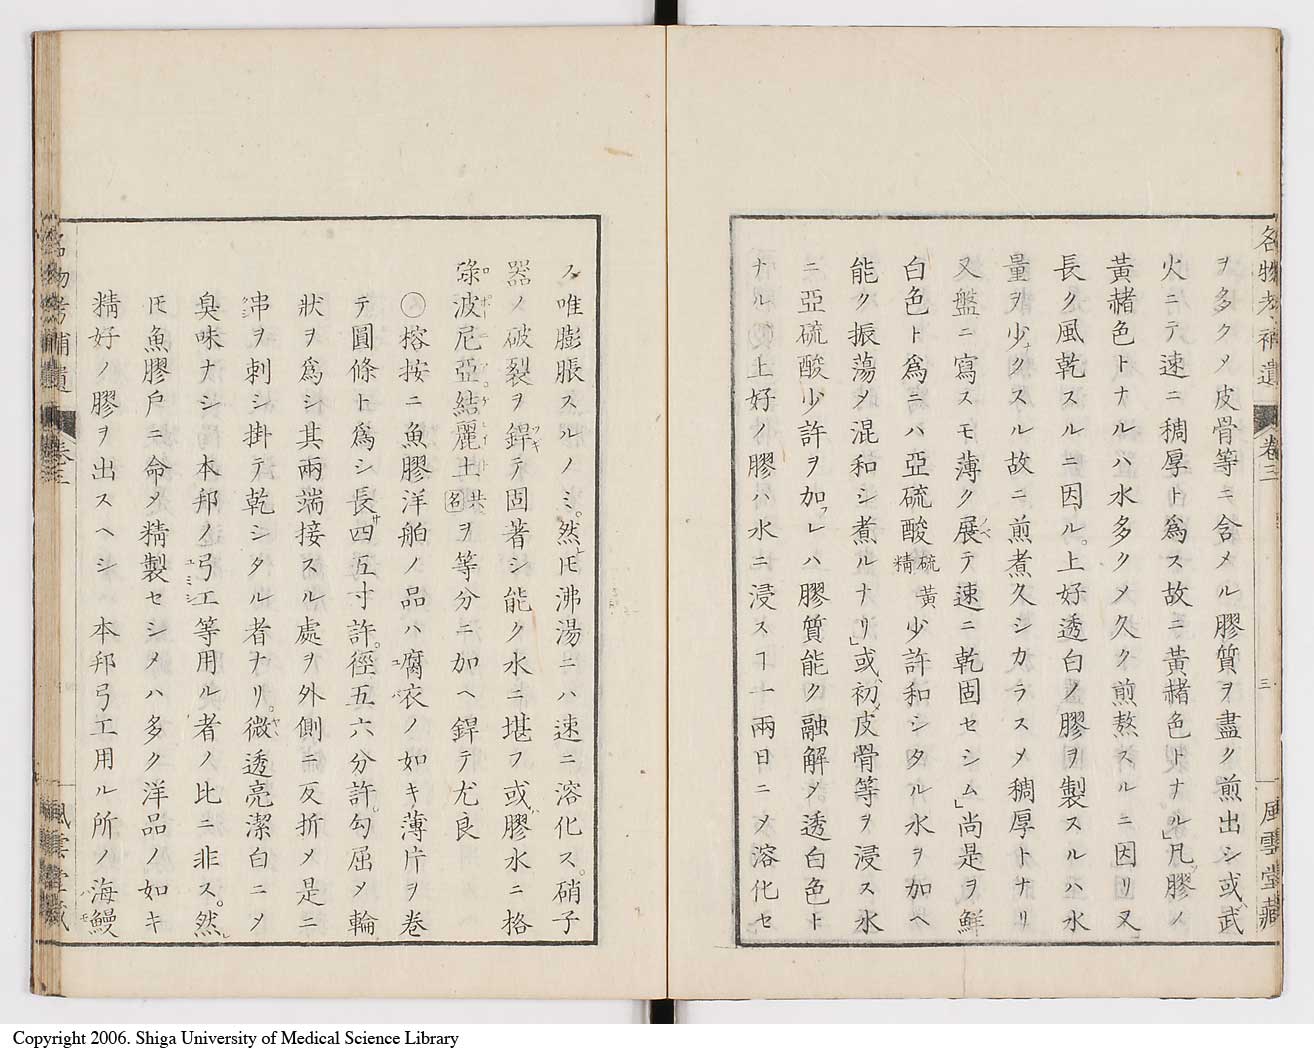 名物考補遺 卷三 三 風雲堂藏
ヲ多クメ皮骨等ニ含メル膠質ヲ盡ク煎出シ或ハ武
火ニテ速ニ稠厚ト爲ス故ニ黃赭色トナル」凡膠ノ
黃赭色トナルハ水多クメ久ク煎熬スルニ因リ又
長ク風乾スルニ因ル。上好透白ノ膠ヲ製スルハ水
量ヲ少ナクスル故ニ煎煮久シカラスメ稠厚トナリ
又盤ニ寫スモ薄ク展テ速ニ乾固セシム」尚是ヲ鮮
白色ト爲ニハ亞硫酸硫黃精少許和シタル水ヲ加ヘ
能ク振蕩メ混和シ煮ルナリ」或ハ初メ皮骨等ヲ浸ス水
ニ亞硫酸少許ヲ加フレハ膠質能ク融解メ透白色ト
ナル」上好ノ膠ハ水ニ浸スヿ一兩日ニメ溶化セ
ス唯膨脹スルノミ。然レ𪜈沸湯ニハ速ニ溶化ス。硝子
器ノ破裂ヲ銲テ固著シ能ク水ニ堪フ或ハ膠水ニ格
碌波尼亞結麗土共名ヲ等分ニ加ヘ銲テ尤良
〇榕按ニ魚膠洋舶ノ品ハ腐衣ノ如キ薄片ヲ卷
テ圓條ト爲シ長サ四五寸許。徑五六分許勾屈メ輪
狀ヲ爲シ其兩端接スル處ヲ外側ニ反折メ是ニ
串ヲ刺シ掛テ乾シタル者ナリ。微透亮潔白ニメ
臭味ナシ本邦ノ弓工等用ル者ノ比ニ非ス。然レ
𪜈魚膠戶ニ命メ精製セシメハ多ク洋品ノ如キ
精好ノ膠ヲ出スヘシ 本邦弓工用ル所ノ海鰻
名物考補遺 卷三 風雲堂藏
Copyright 2006. Shiga University of Medical Science Library